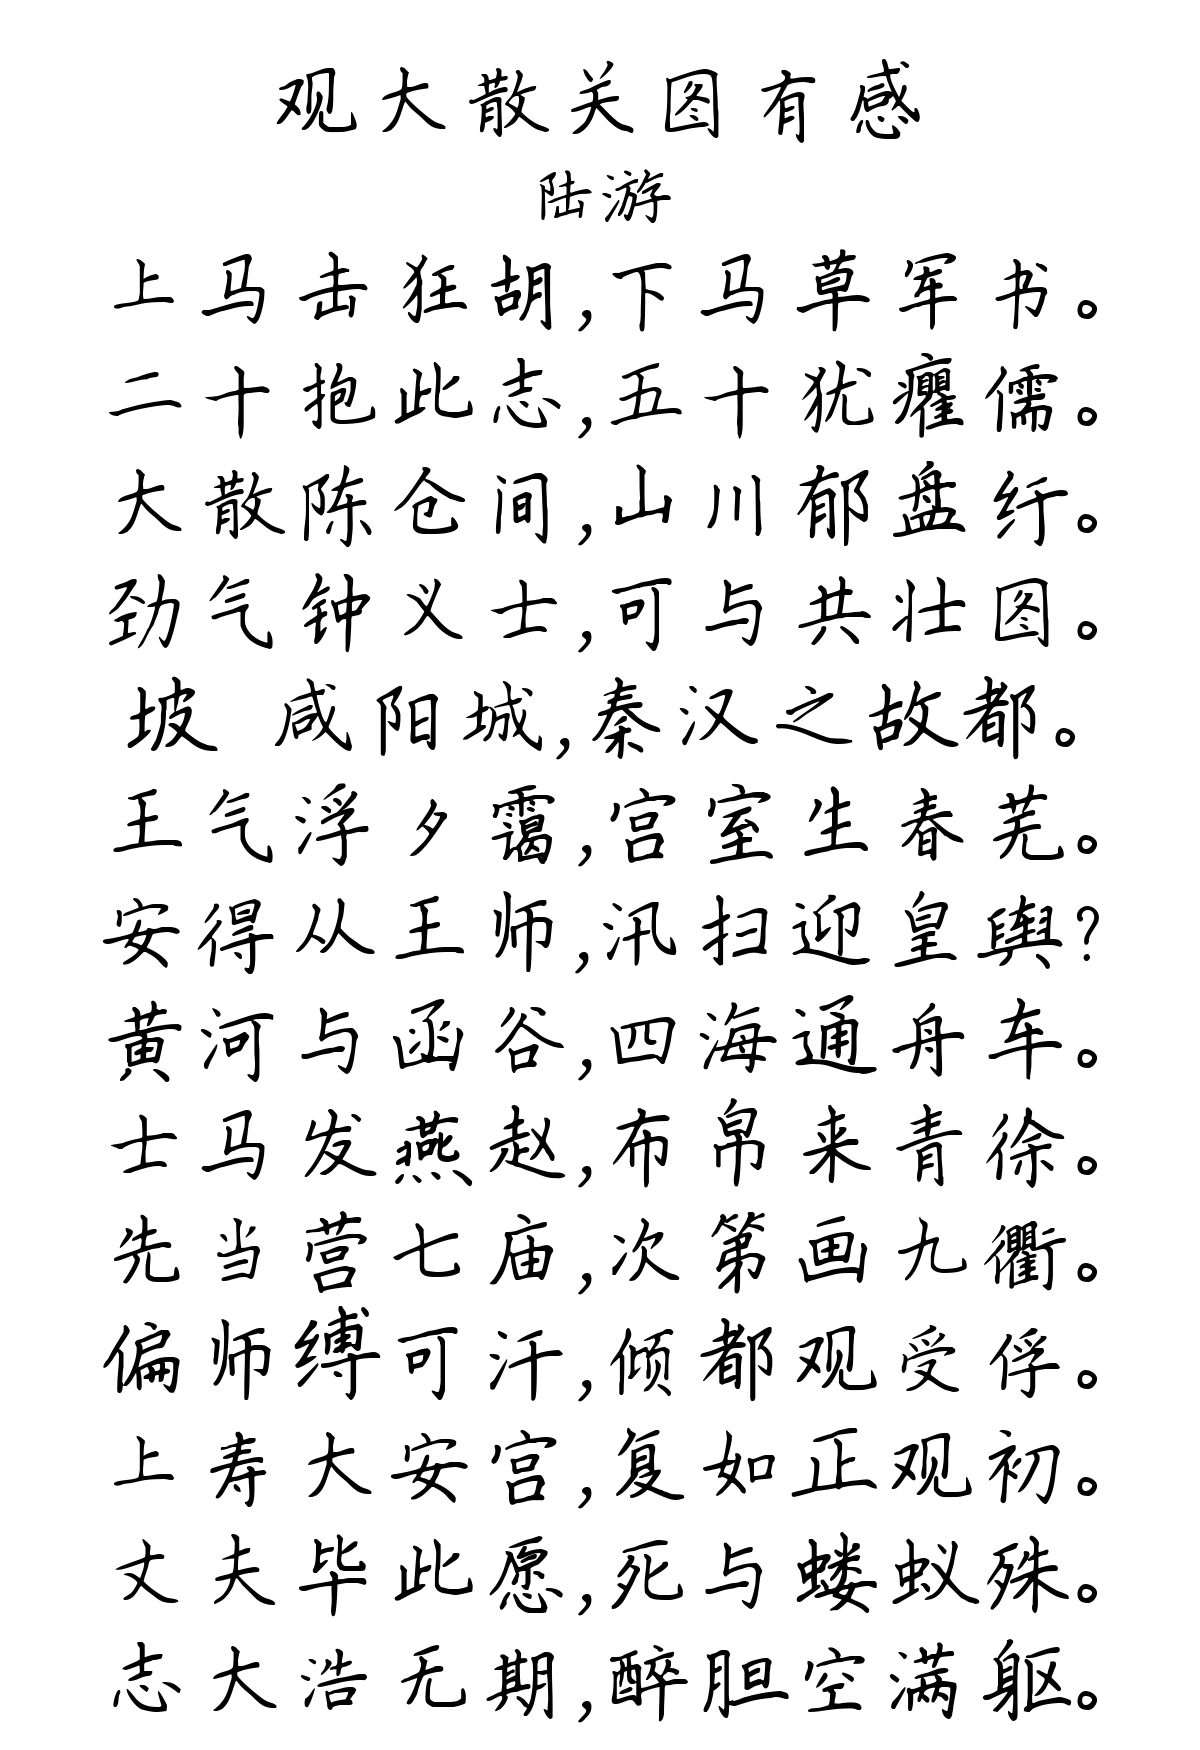 观大散关图有感
陆游
上马击狂胡,下马草军书。
二十抱此志,五十犹癯儒。
大散陈仓间,山川郁盘纡。
劲气钟义士,可与共壮图。
坡 咸阳城,秦汉之故都。
王气浮夕霭,宫室生春芜。
安得从王师,汛扫迎皇舆?
黄河与函谷,四海通舟车。
士马发燕赵,布帛来青徐。
先当营七庙,次第画九衢。
偏师缚可汗,倾都观受俘。
上寿大安宫,复如正观初。
丈夫毕此愿,死与蝼蚁殊。
志大浩无期,醉胆空满躯。